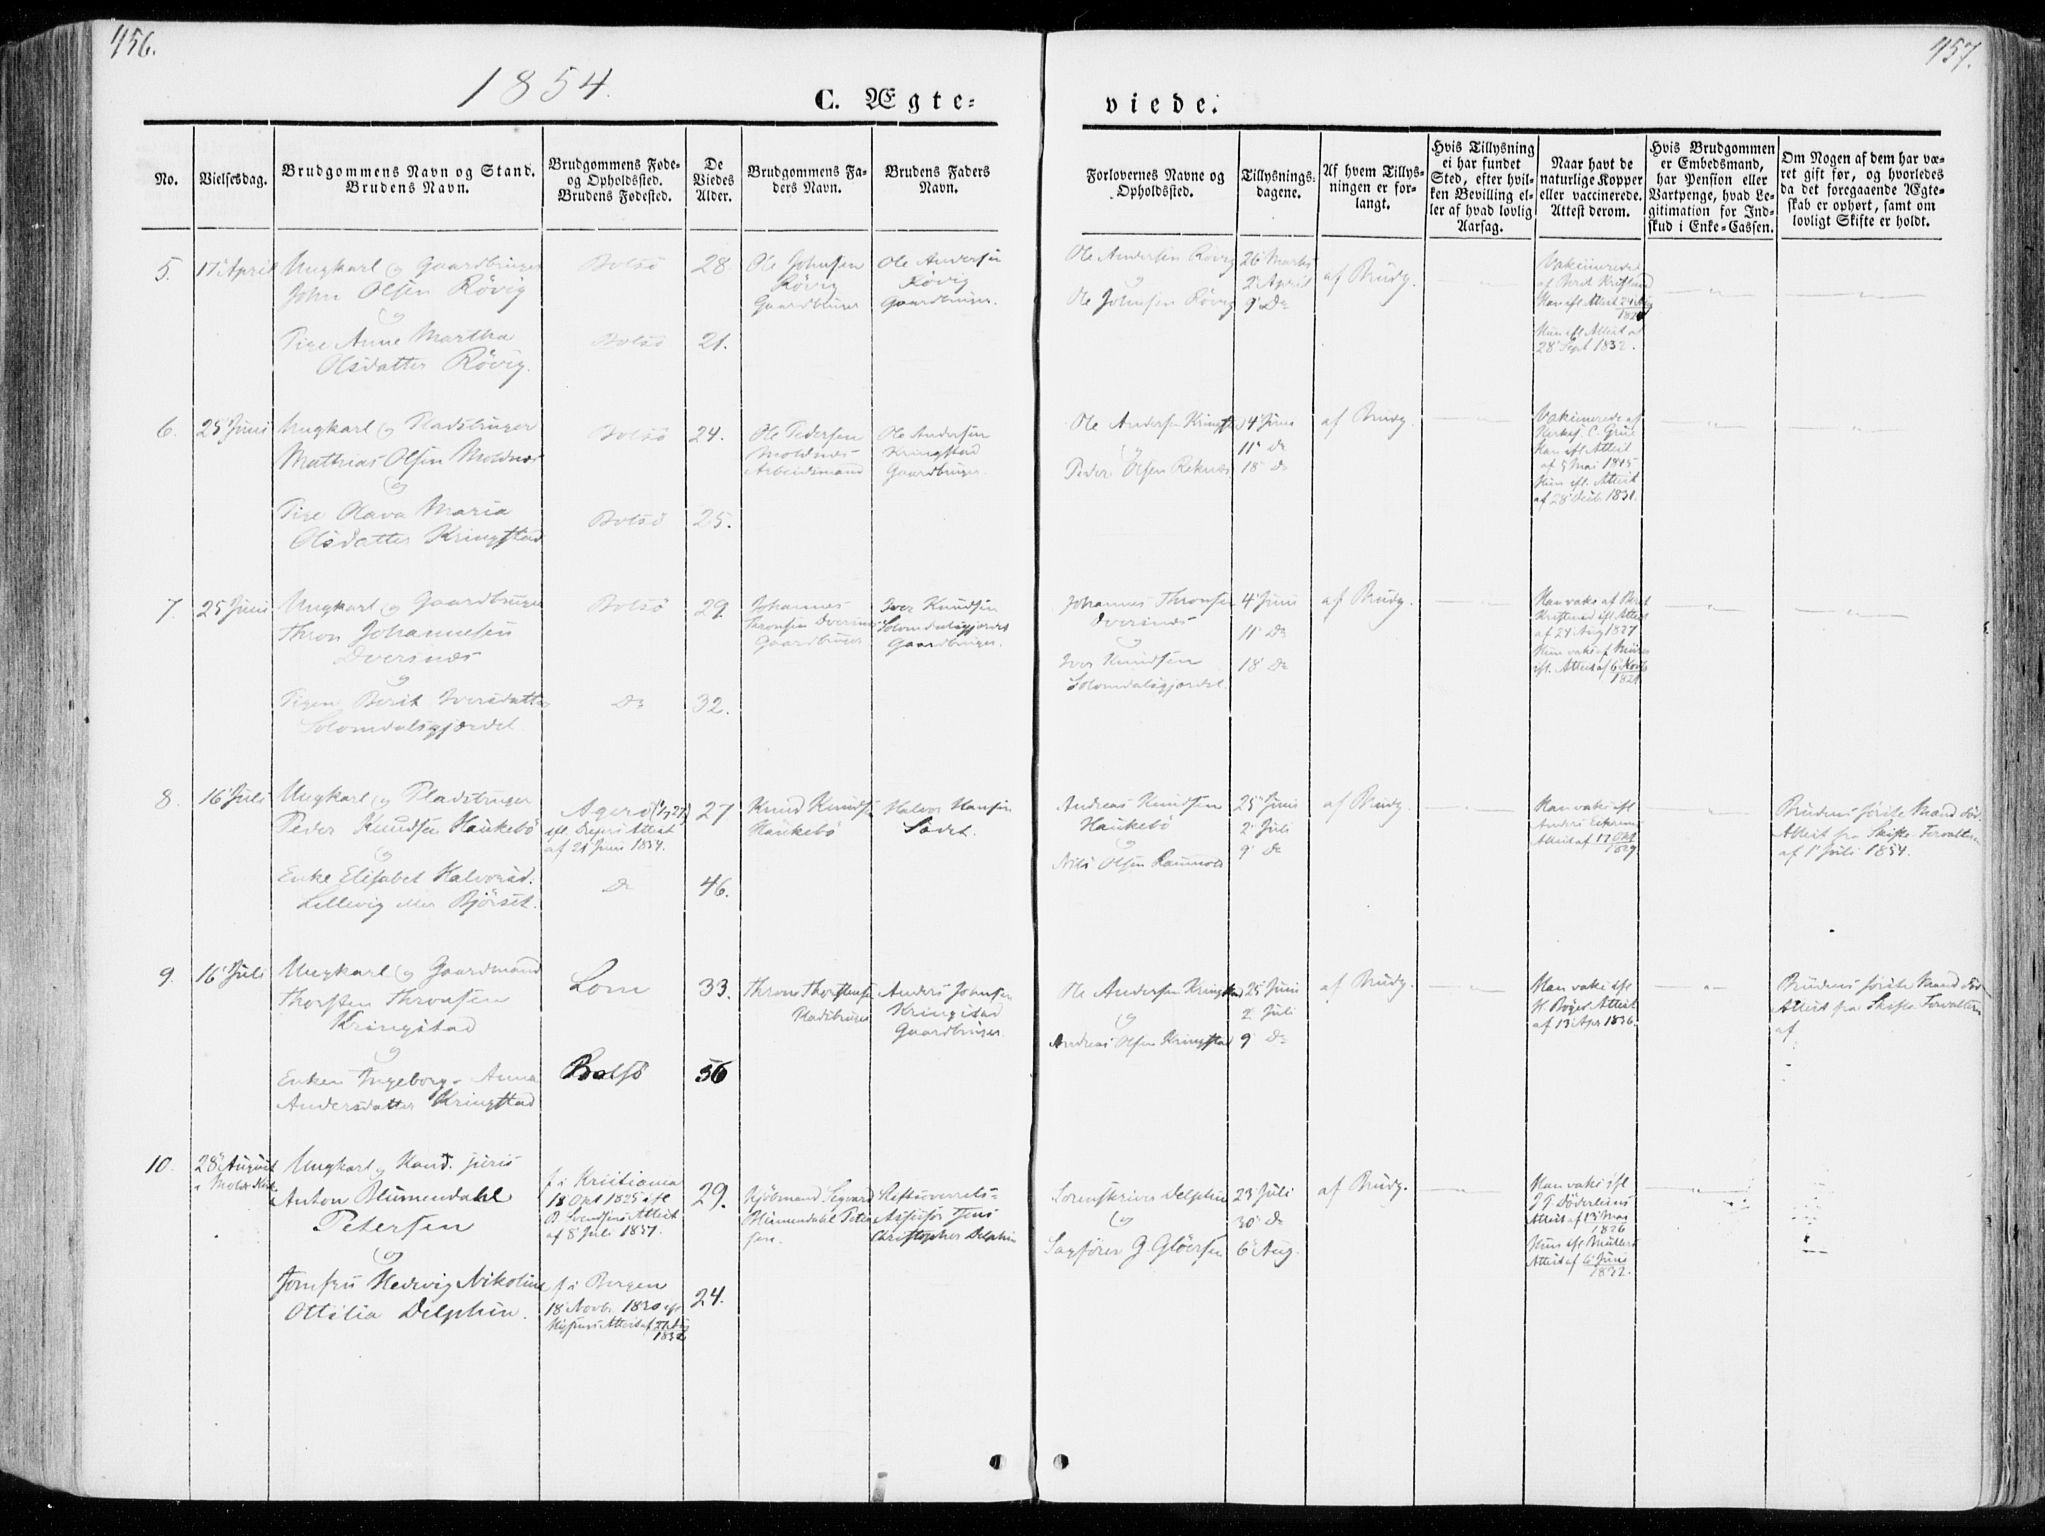 456.
457.
1854.
C. Ægte-
viede.
No.
Vielsesdag.
Brudgommens Navn og Stand.
Brudens Navn.
Brudgommens Føde-
og Opholdssted.
Brudens Fødested.
De
Viedes
Alder.
Brudgommens Fa-
ders Navn.
Brudens Faders
Navn.
Forlovernes Navne og
Opholdssted.
Tillysnings-
dagene.
Af hvem Tillys-
ningen er for-
langt.
Hvis Tillysning
ei har fundet
Sted, efter hvil-
ken Bevilling el-
ler af hvad lovlig
Aarsag.
Naar havt de
naturlige Kopper
eller vaccinerede.
Attest derom.
Hvis Brudgommen
er Embedsmand,
har Pension eller
Vartpenge, hvad Le-
gitimation for Ind-
skud i Enke-Cassen.
Om Nogen af dem har væ-
ret gift før, og hvorledes
da det foregaaende Ægte-
skab er ophørt, samt om
lovligt Skifte er holdt.
5.
17 April
Ungkarl og Gaardbruger
John Olsen Røvig
og
Pige Anne Martha
Olsdatter Røvig.
Bolsø
Bolsø
28
21.
Ole Johnsen
Røvig
Gaardbruger
Ole Andersen
Røvig
Gaardbruger.
Ole Andersen Røvig
og
Ole Johnsen Røvig
26 Marts
2 April
9 Do
af Brudg.
28 Sept 1832.
6.
25 Juni
Ungkarl og Pladsbruger
Mathias Olsen Moldnæs
og
Pige Olava Maria
Olsdatter Kringstad
Bolsø
Bolsø
24.
25.
Ole Pedersen
Moldnæs
Arbeidsmand
Ole Andersen
Kringstad
Gaardbruger.
Ole Andersen Kringstad
og
Peder Olsen Reknes
4 Juni
11 Do
18 Do
af Brudg.
Han efl Attest
Hun efl. Attest
7.
25 Juni
Ungkarl og Gaardbruger
Thron Johannesen
Dversnes
og
Pigen Berit Iversdatter
Solomdalsgjærdet
Bolsø
Do
29
32.
Johannes
Thronsen Dversnes
Gaardbruger
Iver Knudsen
Solomdalsgjærdet
Gaardbruger.
Johannes Thronsen
Dversnes
og
Iver Knudsen
Solomdalsgjærdet.
4 Juni
11 Do
18 Do
af Brudg.
af 24 Aug 1827
8.
16 Juli
Ungkarl og Pladsbruger
Peder Knudsen Haukebø
og
Enke Elisabet Halvorsd.
Lillevig eller Bjørset.
Agerø
af 21 Juni 1854.
Do
27
46.
Knud Knudsen
Haukebø
Halvor Hansen
Andreas Knudsen
Haukebø
og
Nils Olsen
25 Juni
2 Juli
9 Do
af Brudg.
Han vaks efl
Brudens første Mand død.
Attest fra Skifte Forvalteren
af 1 Juli 1854.
9.
16 Juli
Ungkarl og Gaardmand
Thorsten Thronsen
Kringstad
og
Enken Ingeborg Anna
Andersdatter Kringstad
Lom
Bolsø
33.
36
Thron Thorstensen
Pladsbruger
Anders Johnsen
Kringstad
Gaardbruger.
Ole Andersen Kringstad
og
Andreas Olsen Kringstad
25 Juni
2 Juli
9 Do
af Brudg.
Han vaks efl
H. Bøges Attest
af 13 Apr 1836.
Brudens første Mand død
Attest fra Skifte Forvalteren
af
10.
28 August
i Molde Kirke
Ungkarl og Kand. juris
Anton Blumendahl
Petersen
og
Jomfru Hedevig Nikoline
Ottilia Delphin.
f. i Kristiania
18 Okt 1825 efl
B. Svendsens Attest
f. i Bergen
18 Novb. 1830 efl
29.
24.
Kjøbmand Sigvard
Blumendahl Peter-
sen.
Assessor Jens
Christopher Delphin
Sorenskriver Delphin
og
Sagfører G. Gløersen
23 Juli
30 Do
6 Aug.
af Brudg.
Han vaks efl
J G Döderleins
Attest af 13 Mai
1826
Hun efl Müllers
Attest af 6 Juni
1832.